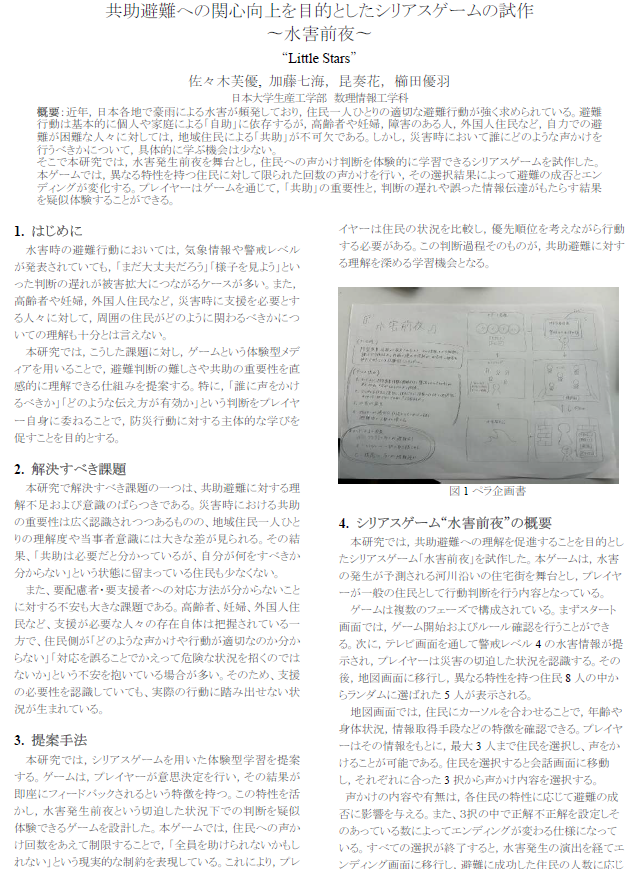 共助避難への関心向上を目的としたシリアスゲームの試作
～水害前夜～
“Little Stars”
佐々木芙優, 加藤七海, 昆奏花, 櫛田優羽
日本大学生産工学部 数理情報工学科
概要：近年, 日本各地で豪雨による水害が頻発しており, 住民一人ひとりの適切な避難行動が強く求められている。避難
行動は基本的に個人や家庭による「自助」に依存するが, 高齢者や妊婦, 障害のある人, 外国人住民など, 自力での避
難が困難な人々に対しては, 地域住民による「共助」が不可欠である。しかし, 災害時において誰にどのような声かけを
行うべきかについて, 具体的に学ぶ機会は少ない。
そこで本研究では, 水害発生前夜を舞台とし, 住民への声かけ判断を体験的に学習できるシリアスゲームを試作した。
本ゲームでは, 異なる特性を持つ住民に対して限られた回数の声かけを行い, その選択結果によって避難の成否とエン
ディングが変化する。プレイヤーはゲームを通じて, 「共助」の重要性と, 判断の遅れや誤った情報伝達がもたらす結果
を疑似体験することができる。
1. はじめに
水害時の避難行動においては, 気象情報や警戒レベル
が発表されていても, 「まだ大丈夫だろう」「様子を見よう」とい
った判断の遅れが被害拡大につながるケースが多い。また,
高齢者や妊婦, 外国人住民など, 災害時に支援を必要とす
る人々に対して, 周囲の住民がどのように関わるべきかにつ
いての理解も十分とは言えない。
本研究では, こうした課題に対し, ゲームという体験型メデ
ィアを用いることで, 避難判断の難しさや共助の重要性を直
感的に理解できる仕組みを提案する。特に, 「誰に声をかけ
るべきか」「どのような伝え方が有効か」という判断をプレイヤ
ー自身に委ねることで, 防災行動に対する主体的な学びを
促すことを目的とする。
2. 解決すべき課題
本研究で解決すべき課題の一つは、共助避難に対する理
解不足および意識のばらつきである。災害時における共助
の重要性は広く認識されつつあるものの、地域住民一人ひ
とりの理解度や当事者意識には大きな差が見られる。その結
果、「共助は必要だと分かっているが、自分が何をすべきか
分からない」という状態に留まっている住民も少なくない。
また、要配慮者・要支援者への対応方法が分からないこと
に対する不安も大きな課題である。高齢者、妊婦、外国人住
民など、支援が必要な人々の存在自体は把握されている一
方で、住民側が「どのような声かけや行動が適切なのか分か
らない」「対応を誤ることでかえって危険な状況を招くのでは
ないか」という不安を抱いている場合が多い。そのため、支援
の必要性を認識していても、実際の行動に踏み出せない状
況が生まれている。
3. 提案手法
本研究では, シリアスゲームを用いた体験型学習を提案
する。ゲームは, プレイヤーが意思決定を行い, その結果が
即座にフィードバックされるという特徴を持つ。この特性を活
かし, 水害発生前夜という切迫した状況下での判断を疑似
体験できるゲームを設計した。本ゲームでは, 住民への声か
け回数をあえて制限することで, 「全員を助けられないかもし
れない」という現実的な制約を表現している。これにより, プレ
イヤーは住民の状況を比較し, 優先順位を考えながら行動
する必要がある。この判断過程そのものが, 共助避難に対す
る理解を深める学習機会となる。
水害前夜
図 1 ペラ企画書
4. シリアスゲーム“水害前夜”の概要
本研究では, 共助避難への理解を促進することを目的とし
たシリアスゲーム「水害前夜」を試作した。本ゲームは, 水害
の発生が予測される河川沿いの住宅街を舞台とし, プレイヤ
ーが一般の住民として行動判断を行う内容となっている。
ゲームは複数のフェーズで構成されている。まずスタート
画面では, ゲーム開始およびルール確認を行うことができ
る。次に, テレビ画面を通して警戒レベル 4 の水害情報が提
示され, プレイヤーは災害の切迫した状況を認識する。その
後, 地図画面に移行し, 異なる特性を持つ住民 8 人の中か
らランダムに選ばれた 5 人が表示される。
地図画面では, 住民にカーソルを合わせることで, 年齢や
身体状況, 情報取得手段などの特徴を確認できる。プレイヤ
ーはその情報をもとに, 最大 3 人まで住民を選択し, 声をか
けることが可能である。住民を選択すると会話画面に移動
し, それぞれに合った 3 択から声かけ内容を選択する。
声かけの内容や有無は, 各住民の特性に応じて避難の成
否に影響を与える。また、3択の中で正解不正解を設定しそ
のあっている数によってエンディングが変わる仕様になって
いる。すべての選択が終了すると, 水害発生の演出を経てエ
ンディング画面に移行し, 避難に成功した住民の人数に応じ